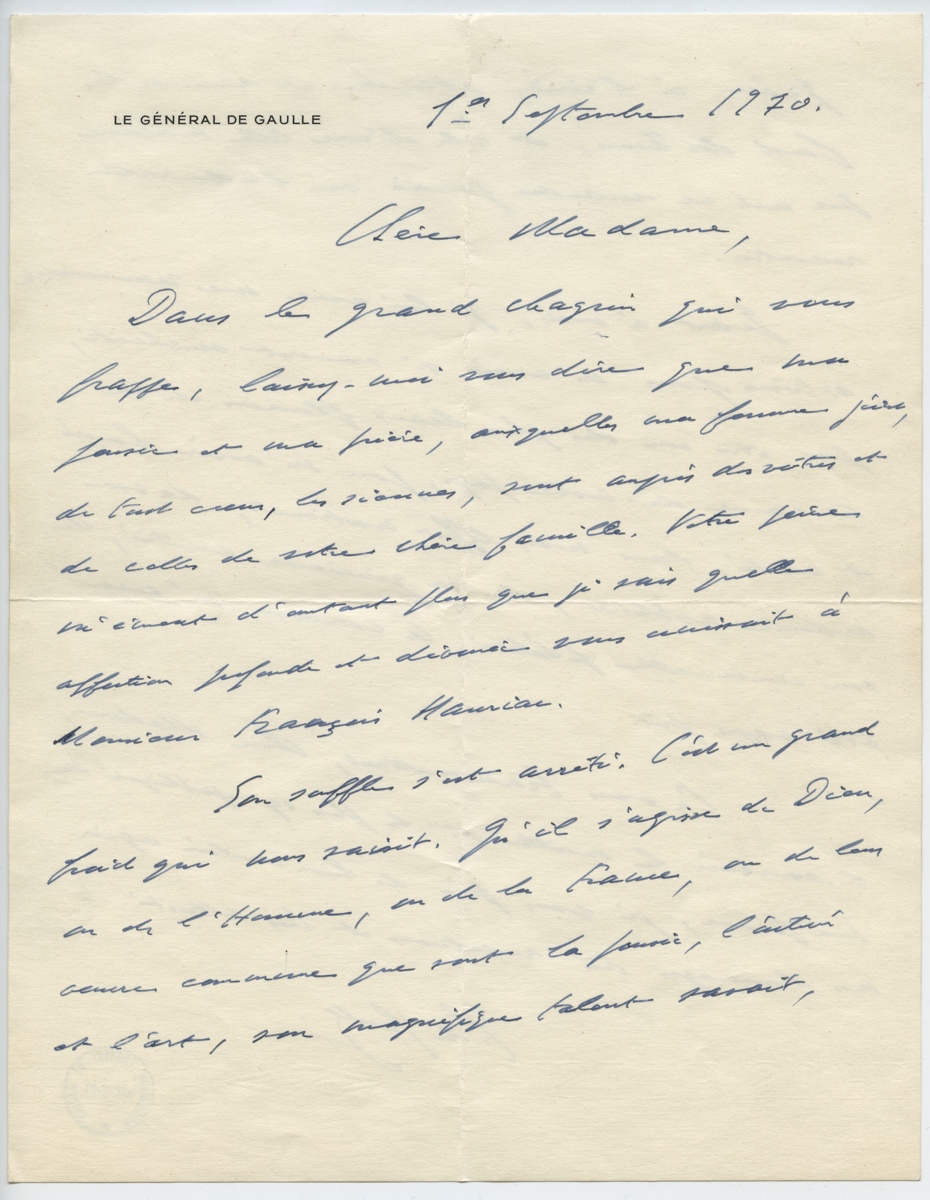 LE GÉNÉRAL DE GAULLE
1er Septembre 1970.
Chère Madame,
Dans le grand chagrin qui vous
frappe, laissez-moi vous dire que ma
pensée et ma prière, auxquelles ma femme joint,
de tout coeur, les siennes, sont auprès des vôtres et
de celles de votre chère famille. Votre peine
m'émeut d'autant plus que je sais quelle
affection profonde et dévouée vous unissait à
Monsieur François Mauriac.
Son souffle s'est arrêté. C'est un grand
froid qui nous saisit. Qu'il s'agisse de Dieu,
ou de l'Homme, ou de la France, ou de leur
oeuvre commune que sont la pensée, l'action
et l'art, son magnifique talent savait,